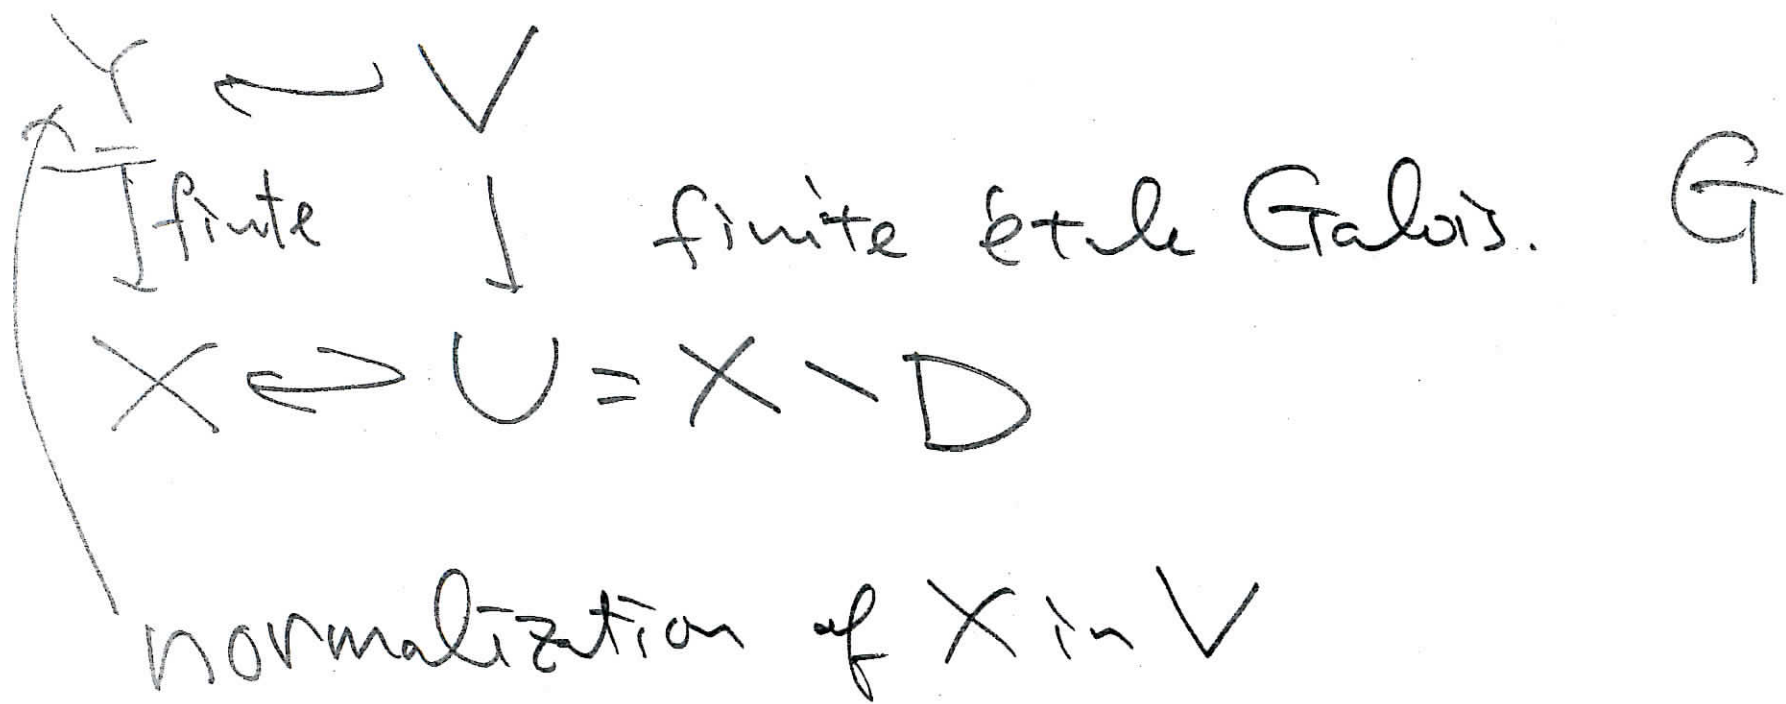 Y ← V
↓ finite ↓ finite étale Galois. G
X ↩ U = X \ D
normalization of X in V